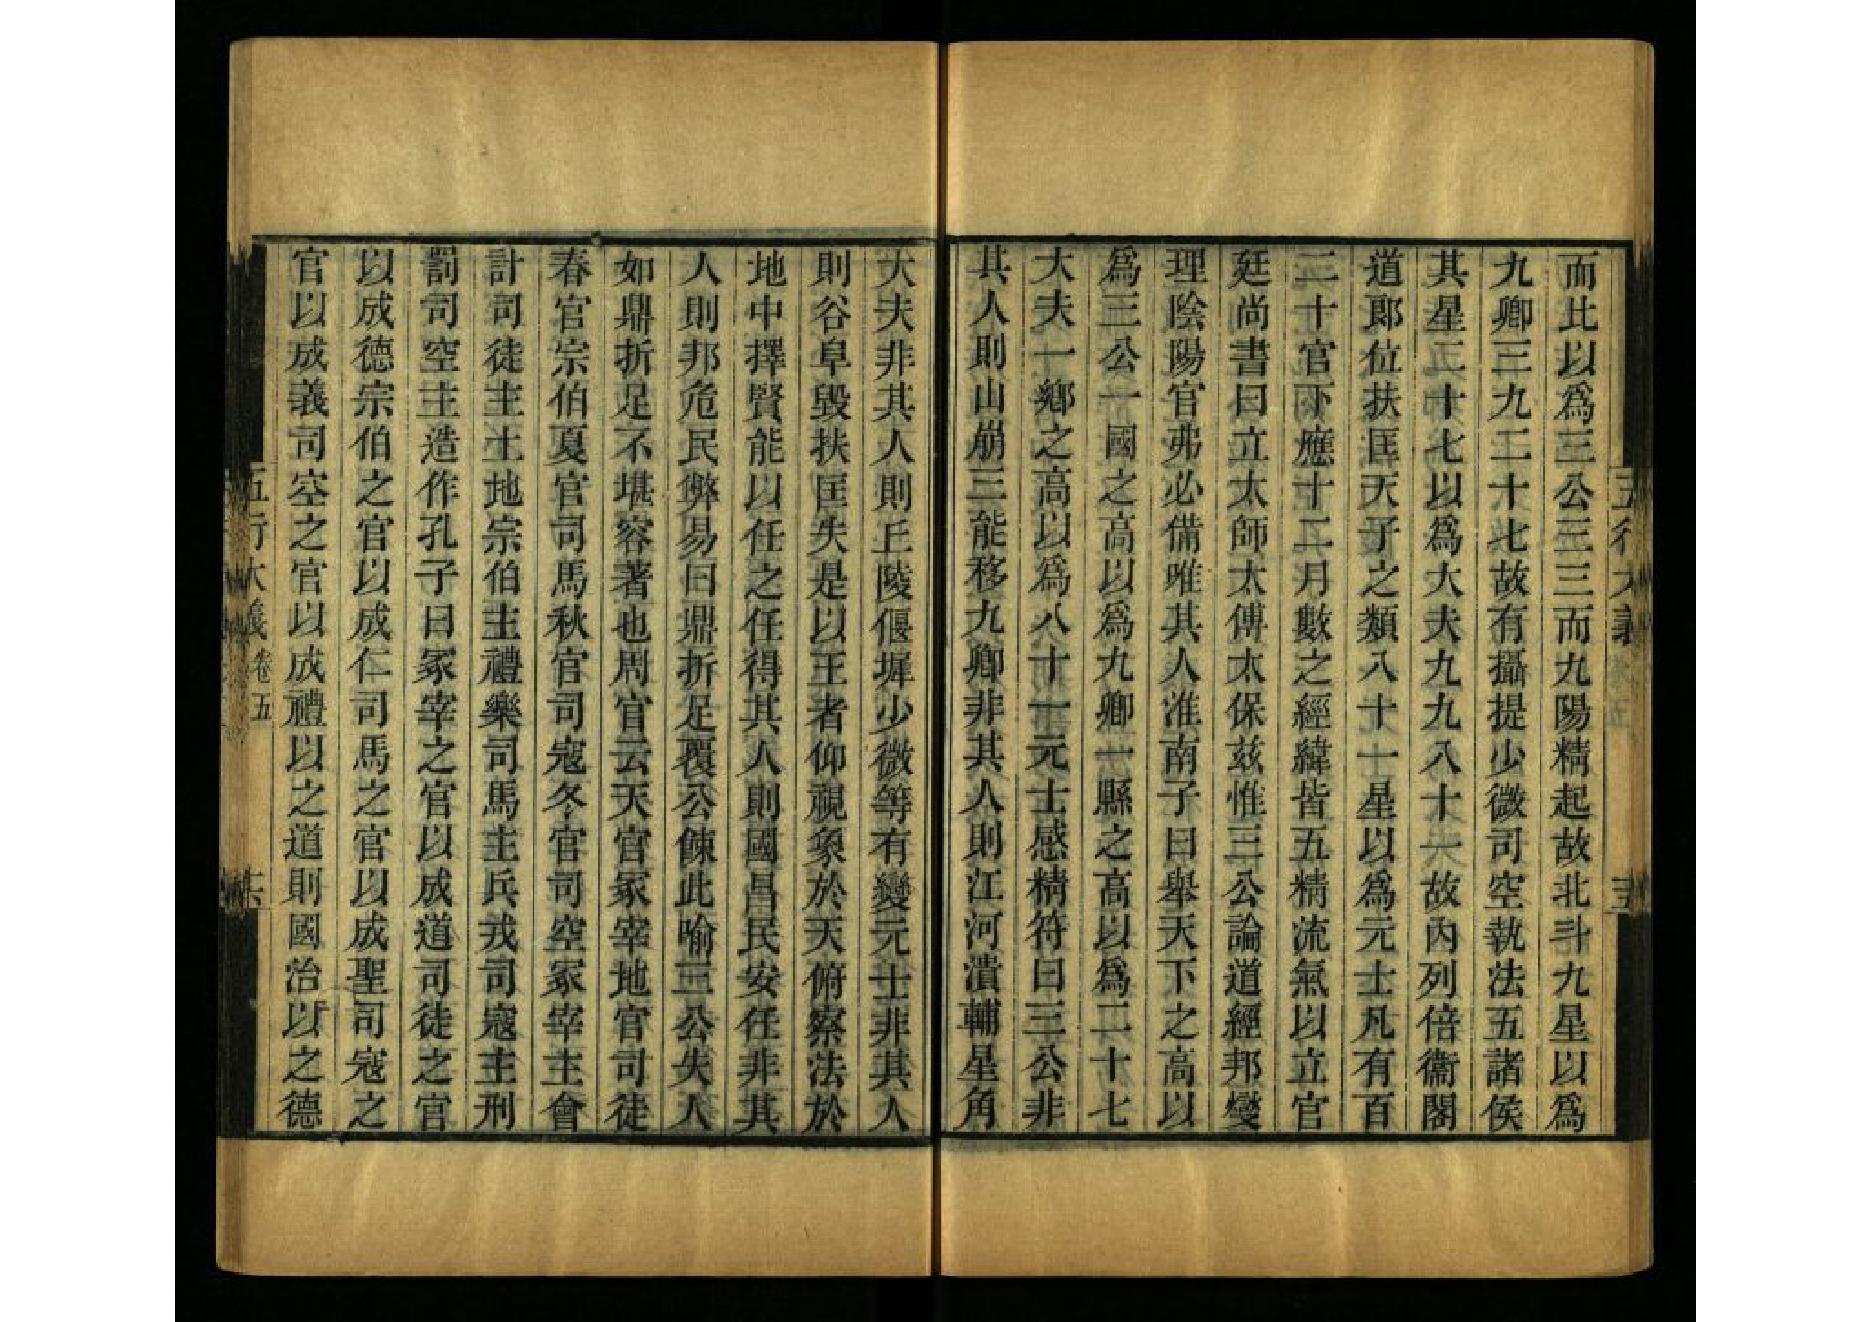 而此以爲三公三三而九陽精起故北斗九星以爲
九卿三九二十七故有攝提少微司空執法五諸侯
其星二十七以爲大夫九九八十一故內列倍衞閣
道郞位扶匡天子之類八十一星以爲元士凡有百
二十官下應十二月數之經緯皆五精流氣以立官
廷尚書曰立太師太傅太保兹惟三公論道經邦燮
理陰陽官弗必備唯其人淮南子曰舉天下之高以
爲三公一國之高以爲九卿一縣之高以爲二十七
大夫一鄕之高以爲八十一元士感精符曰三公非
其人則山崩三能移九卿非其人則江河潰輔星角
大夫非其人則丘陵偃墀少微等有變元士非其人
則谷阜毀扶匡失是以王者仰視象於天俯察法於
地中擇賢能以任之任得其人則國昌民安任非其
人則邦危民弊易曰鼎折足覆公餗此喻三公失人
如鼎折足不堪容著也周官云天官冢宰地官司徒
春官宗伯夏官司馬秋官司寇冬官司空冢宰主會
計司徒主土地宗伯主禮樂司馬主兵戎司寇主刑
罰司空主造作孔子曰冢宰之官以成道司徒之官
以成德宗伯之官以成仁司馬之官以成聖司寇之
官以成義司空之官以成禮以之道則國治以之德
五行大義 卷五